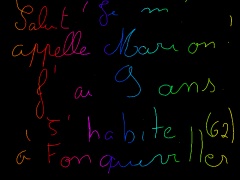 Salut Je m'
appelle Marion
j'ai 9 ans
J'habite (62)
à Fonquevillers